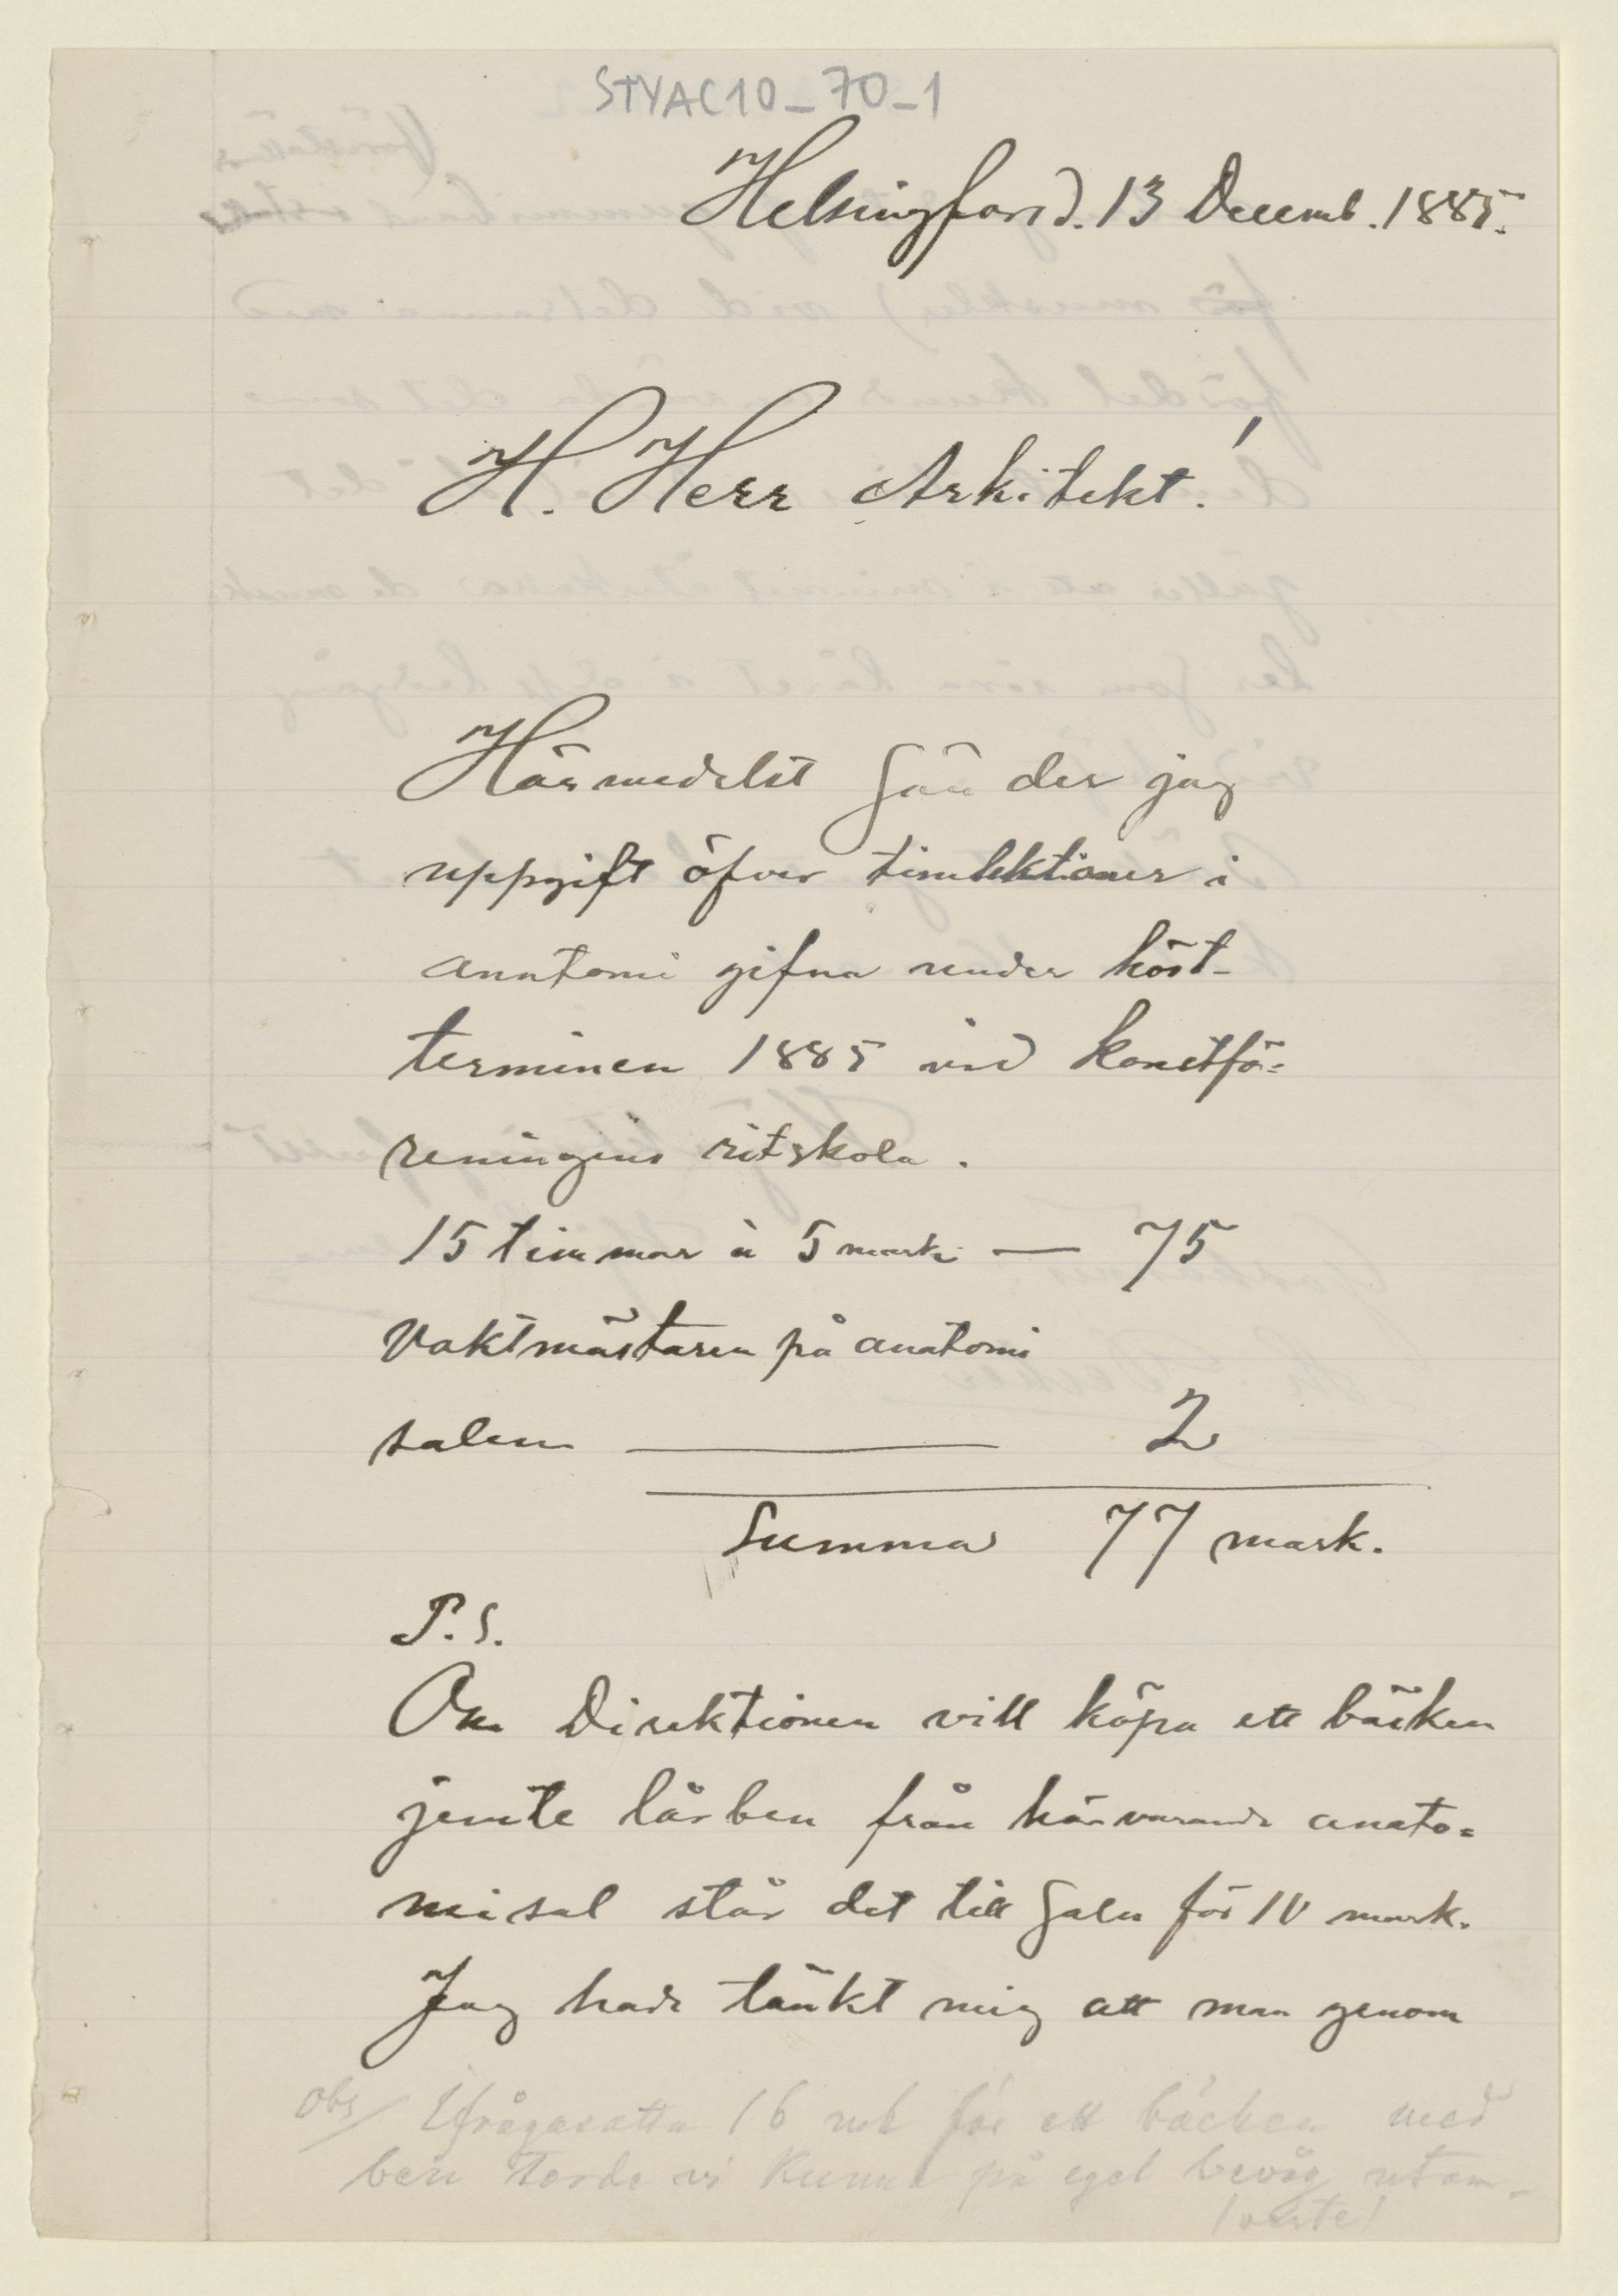 STYAC10_70_1
Helsingfors d. 13 Decemb. 1885.
H. Herr Arkitekt!
Härmedelst sänder jag
uppgift öfver timlektioner i
anatomi gifna under höst-
terminen 1885 vid konstfö=
reningens ritskola.
15 timmar à 5 mark — 75
Vaktmästaren på anatomi
salen — 2
Summa 77 mark.
P.S.
Om Direktionen vill köpa ett bäcken
jemte lårben från härvarande anato=
misal står det till salu för 10 mark.
Jag hade tänkt mig att man genom
Obs/ Ifrågasatta 16 mk för ett bäcken med
ben torde vi kunna på eget bevåg utom-
/verte/